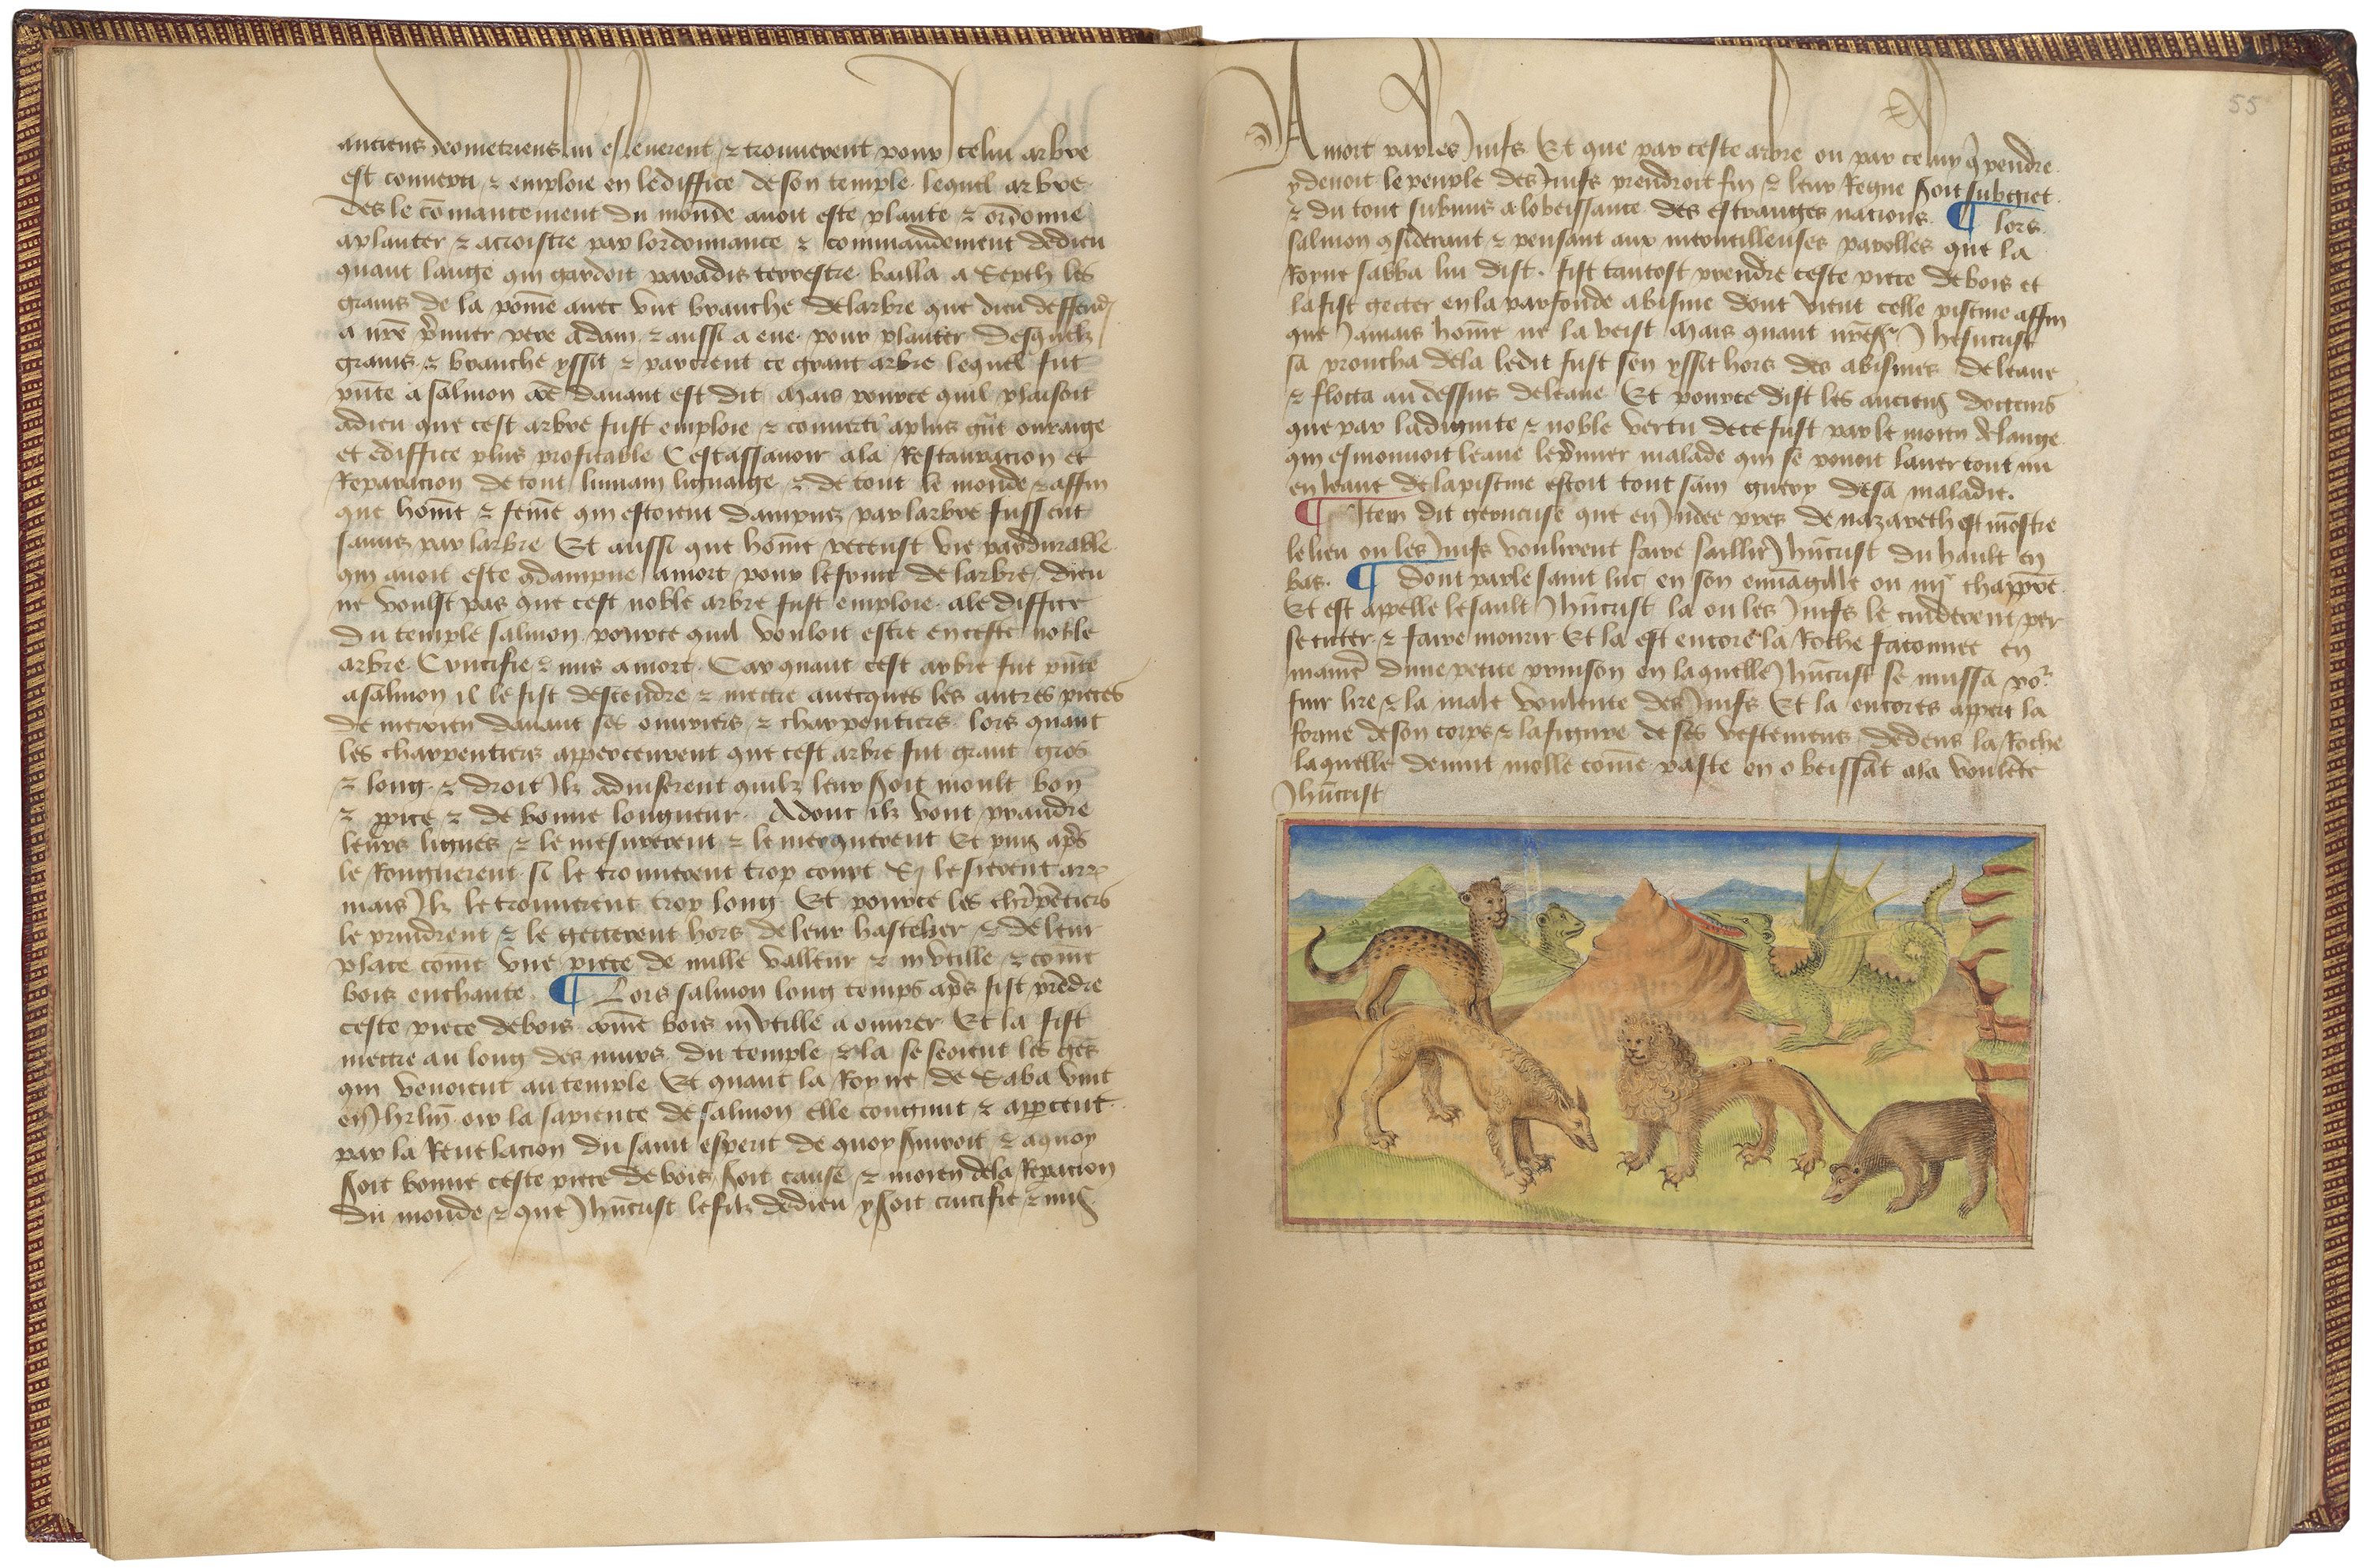 anciens deometriens lui esleuerent ⁊ trouuerent pour celui arbre
est conuerti ⁊ emploie en lediffice de son temple lequel arbre
des le cōmancement du monde auoit este plante ⁊ ordonne
aplanter ⁊ acroistre par lordonnance ⁊ commandement dedieu
quant lange qui gardoit paradis terrestre bailla a Seth les
grains de la pōme auec vne branche delarbre que dieu deffend
a nr̄e p̄mier pere adam ⁊ aussi a eue pour planter Desquelz
grains ⁊ branche yssit ⁊ parcreut ce grant arbre lequel fut
pn̄te a salmon cōe dauant est dit mais pource quil plaisoit
adieu que cest arbre fust emploie ⁊ conuerti aplus gñt ouuraige
et ediffice plus profitable Cestassauoir ala Restauracion et
Reparacion de tout humain lignaige ⁊ de tout le monde ⁊ affin
que hōme ⁊ fēme qui estoient dampnez par larbre fussent
sauuez par larbre Et aussi que hōme receust vie pardurable
qui auoit este ꝯdampne amort pour le fruit de larbre dieu
ne voulst pas que cest noble arbre fust emploie alediffice
du temple salmon pource quil vouloit estre enceste noble
arbre Crucifie ⁊ mis amort Car quant cest arbre fut pn̄te
asalmon il le fist descendre ⁊ mettre auecques les autres pieces
de merrien dauant ses ouuriers ⁊ charpentiers lors quant
les charpentiers apperceurent que cest arbre fut grant gros
⁊ long ⁊ droit Ilz aduiserent quilz leur ꝭoit moult bon
⁊ ꝓpice ⁊ de bonne longueur Adonc ilz vont prandre
leurs lignes ⁊ le mesurerent ⁊ le merquerent Et puis ap̄s
le Ronguerent si le trouuerent trop court
mais Ilz le trouuerent trop long Et pource les chr̄pētiers
le prindrent ⁊ le getterent hors de leur hastelier ⁊ de leur
place cōme vne piece de nulle valleur ⁊ inutille ⁊ cōme
bois enchante ¶ Lors salmon long temps ap̄s fist prēdre
ceste piece debois cōme bois inutille a ouurer Et la fist
mettre au long des murs du temple ⁊ la se seoient les gēs
qui venoient au temple Et quant la Royne de Saba vint
en Ihrlm̄ oir la sapience de salmon elle congnut ⁊ apperceut
par la Reuelacion du saint esperit de quoy ꝭuiroit ⁊ aquoy
ꝭoit bonne ceste piece de bois ꝭoit cause ⁊ moien dela Repacion
du monde ⁊ que Ihūcrist lefilz dedieu y ꝭoit crucifie ⁊ mis
A mort par les Juifs Et que par ceste arbre ou par celuy q̄ pendre
y deuoit le peuple des Juifs prendroit fin ⁊ leur Regne ꝭoit subgiet
⁊ du tout submis a lobeissance des estranges nacions ¶ lors
salmon ꝯsiderant ⁊ pensant aux merueilleuses parolles que la
Royne sabba lui dist fist tantost prendre ceste piece debois et
lafist getter en la parfonde abisme dont vient celle piscine affin
que Jamais hōme ne la veist Mais quant nr̄e sr̄ Ihesucrist
sa proucha dela ledit fust sen yssit hors des abismes deleaue
⁊ flotta au dessus deleaue Et pource dist les anciens docteurs
que par ladignite ⁊ noble vertu de ce fust par le moien de lange
qui esmouuoit leaue lep̄mier malade qui se pouoit lauer tout nu
en leaue de lapiscine estoit tout sain guery desa maladie.
¶ Item dit geroncuse que en Judee pres de nazareth est mōstre
le lieu ou les Juifs voulirent faire saillir Ihūcrist du hault en
bas. ¶ dont parle saint luc en son euuāgille ou iiije chappre
Et est appelle lesault Ihūcrist la ou les Juifs le cuiderent per
secuter ⁊ faire mourir Et la est encore la Roche faconnee en
maniē dune petite prinson en laquelle Ihūcrist se mussa por
fuir lire ⁊ la male voulente des Juifs Et la encores appert la
forme deson corps ⁊ lafigure de ses vestemens dedens la Roche
laquelle deuint molle cōme paste en obeissāt ala voulēte
Ihūcrist
55